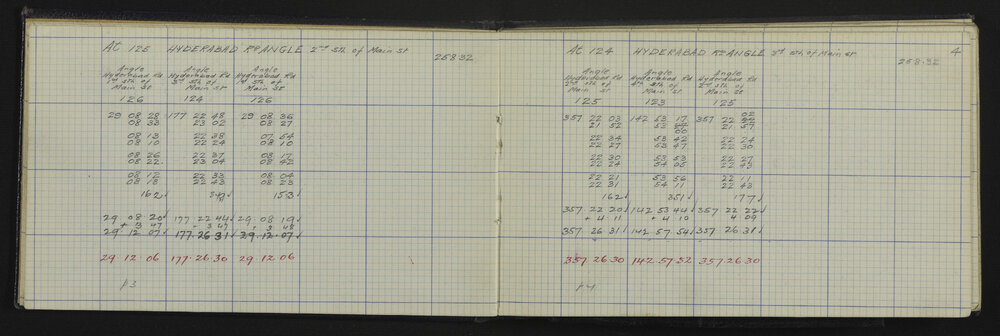 At 125 HYDERABAD RD ANGLE 2nd Sth. of Main St
258.32
Angle Angle Angle
Hyderabad Rd Hyderabad Rd Hyderabad Rd
1st Sth. of 3rd Sth. of 1st Sth. of
Main St Main St Main St
126 124 126
29 08 28 177 22 48 29 08 36
08 33 23 02 08 27
08 13 22 38 07 54
08 10 22 24 08 10
08 26 22 37 08 17
08 22 23 04 08 42
08 12 22 33 08 04
08 18 22 43 08 23
162 153
29 08 20 177 22 44 29 08 19
+ 3 47 + 3 47 + 3 48
29 12 07 177.26 31 29.12.07
29.12.06 177.26.30 29.12.06
p3
At 124 HYDERABAD RD ANGLE 3rd Sth. of Main St
4
258.32
Angle Angle Angle
Hyderabad Rd Hyderabad Rd Hyderabad Rd
2nd Sth. of 4th Sth. of 2nd Sth. of
Main St Main St Main St
125 123 125
357 22 03 142 53 17 357 22
21 52 53 21 57
22 34 53 42 22 24
22 27 53 47 22 30
22 30 53 53 22 27
22 24 54 05 22 43
22 21 53 56 22 11
22 31 54 11 22 43
162 351 177
357 22 20 142 53 44 357 22 22
+ 4 11 + 4 10 4 09
357 26 31 142 57 54 357 26 31
357 26 30 142.57.52 357.26.30
p4